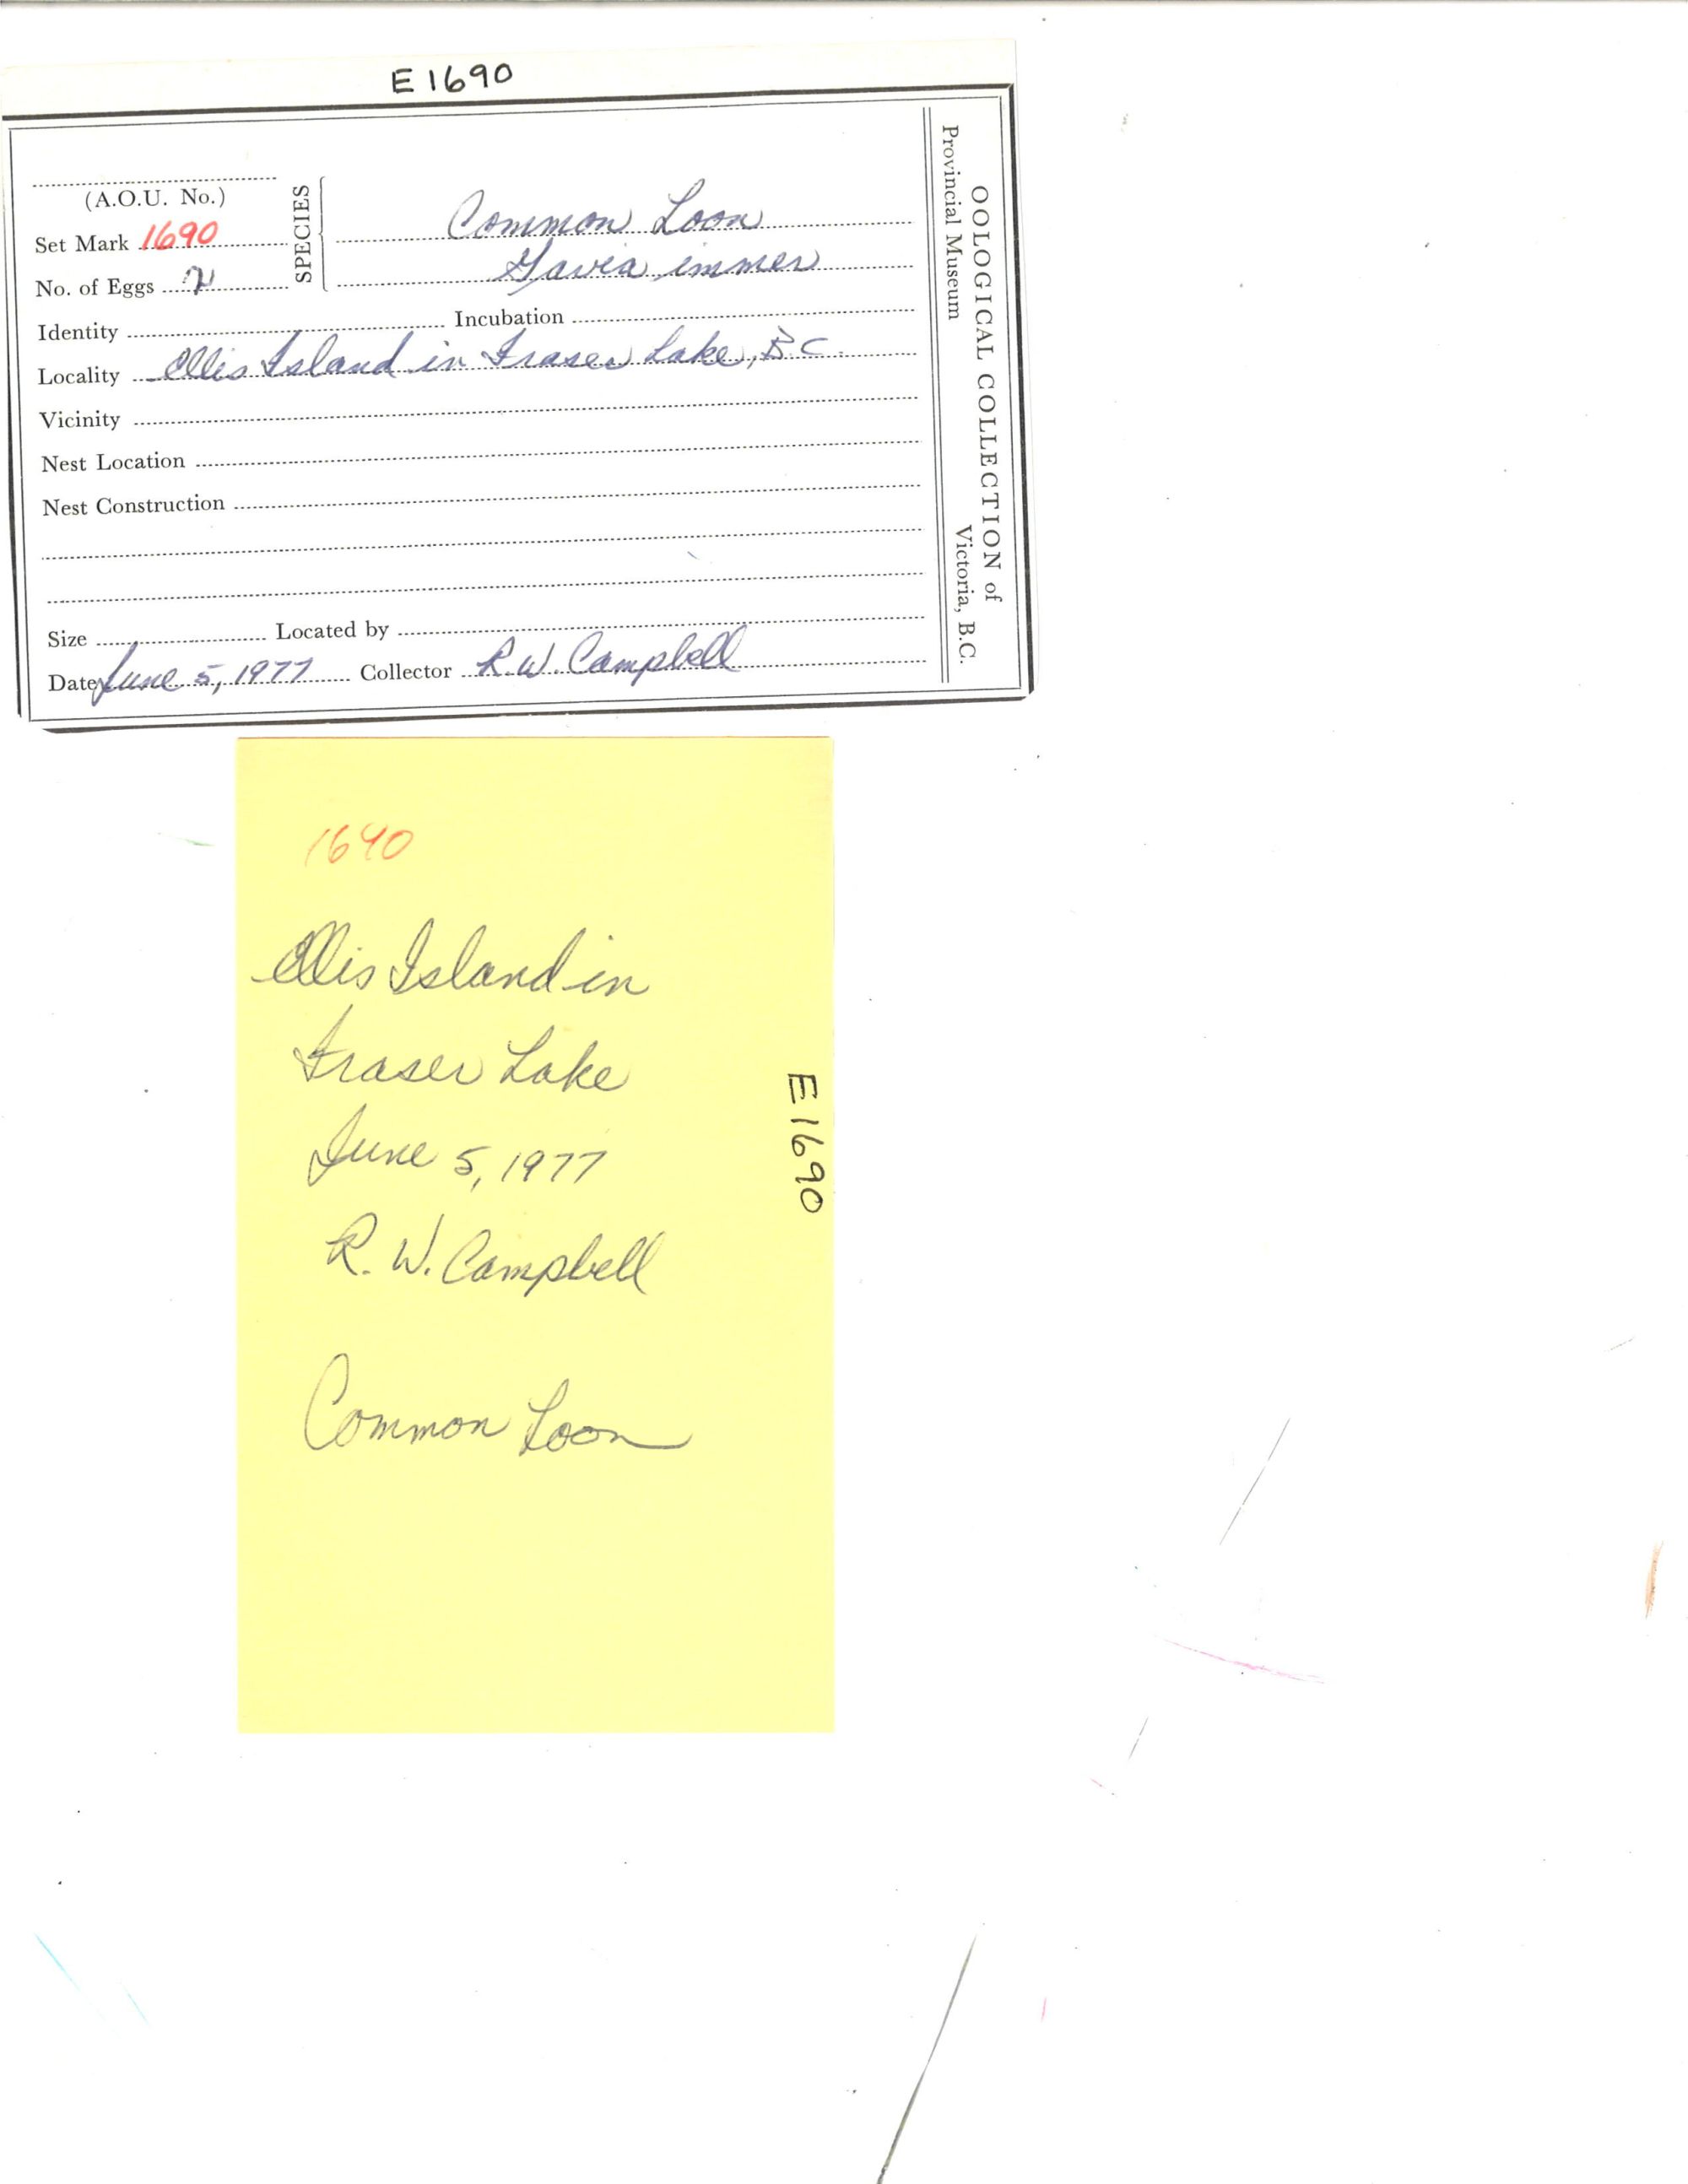 E1690
(A.O.U. No.)
Set Mark 1690
No. of Eggs 2
SPECIES
Common Loon
Gavia immer
Identity Incubation
Locality Ellis Island in Fraser Lake, B.C.
Vicinity
Nest Location
Nest Construction
Size Located by
Date June 5, 1977 Collector R.W. Campbell
OOLOGICAL COLLECTION of
Provincial Museum Victoria, B.C.
1690
Ellis Island in
Fraser Lake
June 5, 1977
R. W. Campbell
Common Loon
E1690